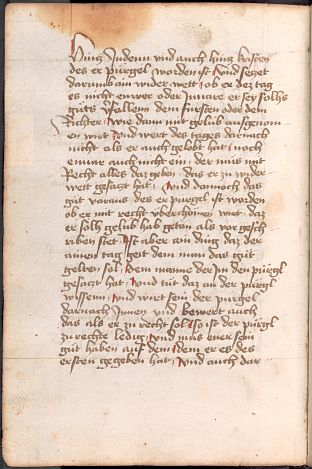 hintz Juden vnd auch hintz kristen
des er pürgel worden ist vnd setzet
darumb ain wider wett ob er des tag
es nicht enwer oder Jnnare er sey solhs
gütz veruallen dem fürsten oder dem
Richter wie dann mit gelüb aufgenom
en wirt vnd wert des tages darnach
nicht als er auch gelobt hat noch
ennar auch nicht ein der mües mit
Recht alles daz geben das er zu wider
wett gesatzt hat vnd dannoch das
güt daraus des er pürgel ist worden
ob er mit recht vberchomen wirt daz
er solh gelüb hab getan als vor gesch
riben stet Jst aber ain ding daz der
ainen tag geit dem man das güt
gelten sol dem manne der Jm den pürgl
gesatzt hat vnd tüt daz an der pürgl
wissenn vnd wirt sein der pürgel
darnach Jnnen vnd bewert auch
das als er zu recht sol so ist der pürgl
zu rechte ledig vnd müs ener sein
güt haben auf dem dem er es des
ersten gegeben hat vnd auch dar